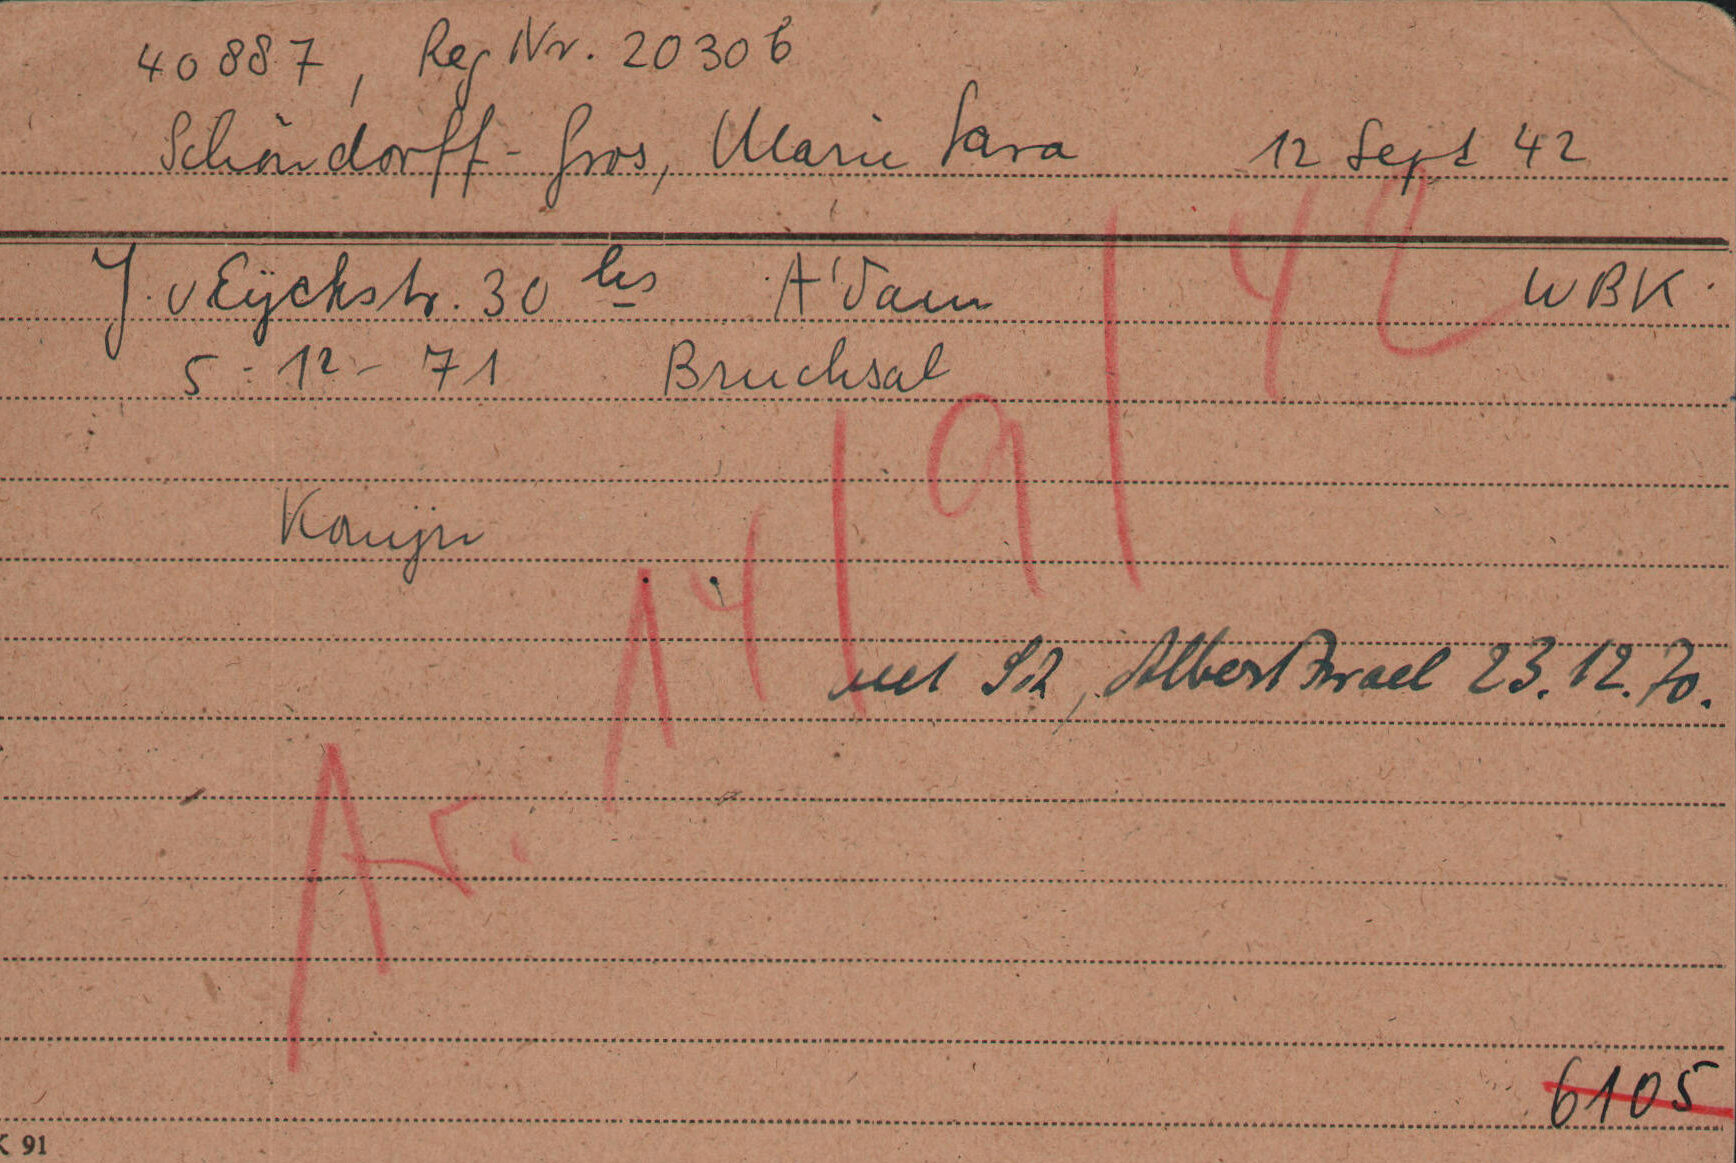 40887, Reg Nr. 20306
Schöndorff-Gros, Marie Sara 12 Sept 42
J. v Eyckstr. 30 hs A'dam WBK.
5-12-71 Bruchsal
Konijn
met Sch, Albert Israel 23.12.70.
Ar. 14/9/42
6105
K 91